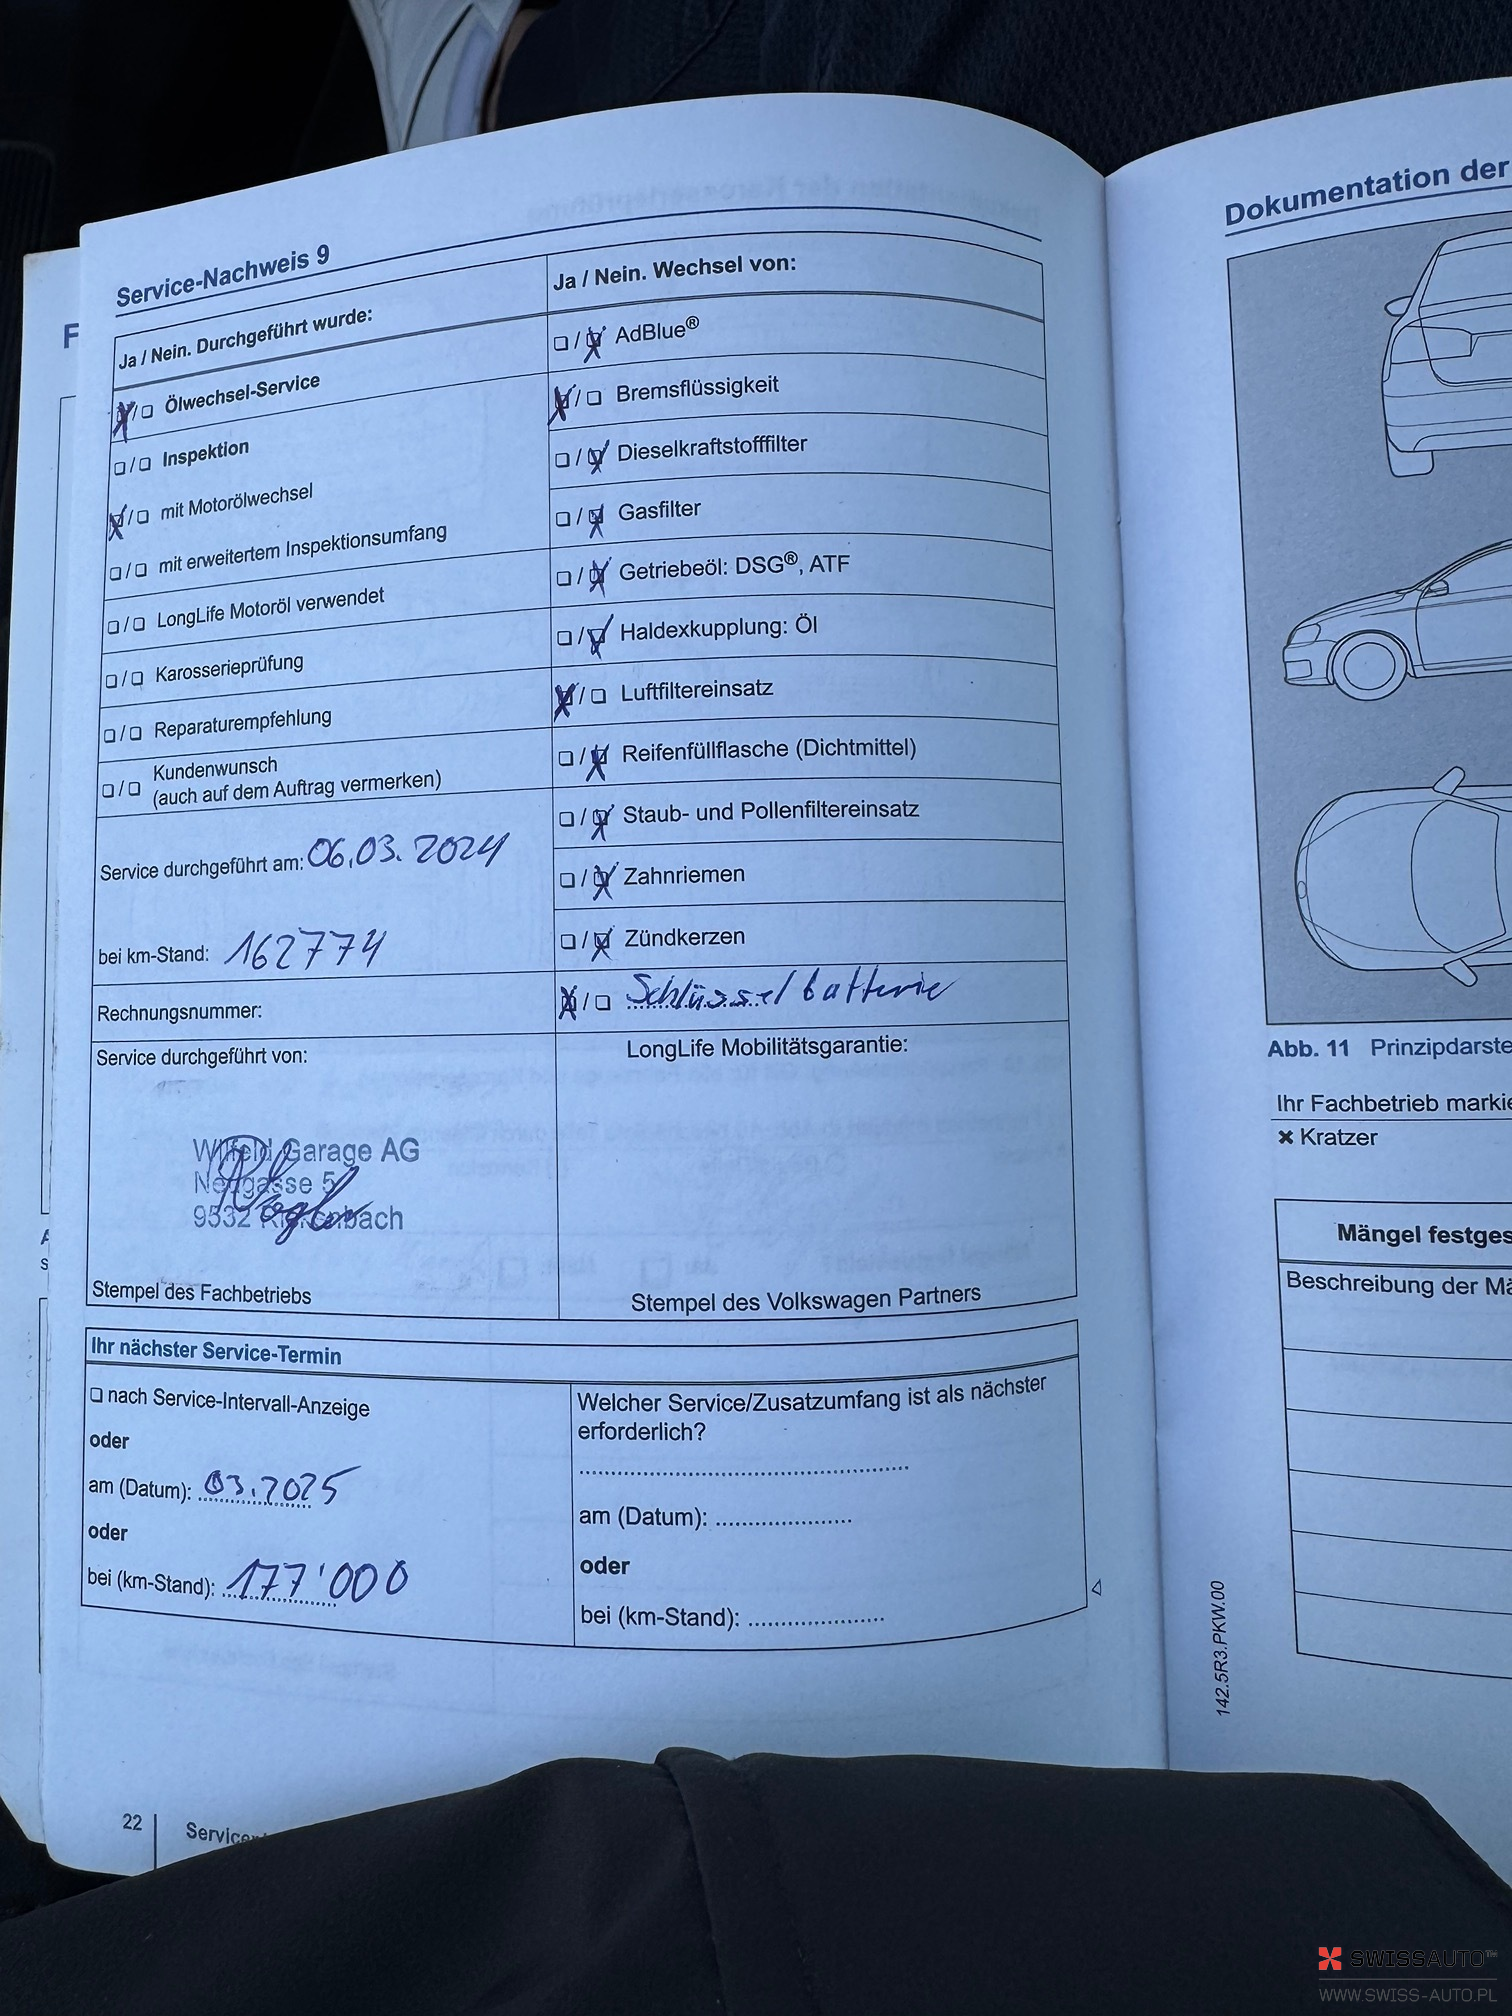 Service-Nachweis 9
Ja / Nein. Durchgeführt wurde:
Ölwechsel-Service
Inspektion
mit Motorölwechsel
mit erweitertem Inspektionsumfang
LongLife Motoröl verwendet
Karosserieprüfung
Reparaturempfehlung
Kundenwunsch
(auch auf dem Auftrag vermerken)
Service durchgeführt am: 06.03.2024
bei km-Stand: 162774
Rechnungsnummer:
Service durchgeführt von:
Wilfeld Garage AG
Neugasse 5
9532 Rickenbach
Stempel des Fachbetriebs
Ja / Nein. Wechsel von:
AdBlue®
Bremsflüssigkeit
Dieselkraftstofffilter
Gasfilter
Getriebeöl: DSG®, ATF
Haldexkupplung: Öl
Luftfiltereinsatz
Reifenfüllflasche (Dichtmittel)
Staub- und Pollenfiltereinsatz
Zahnriemen
Zündkerzen
Schlüsselbatterie
LongLife Mobilitätsgarantie:
Stempel des Volkswagen Partners
Ihr nächster Service-Termin
nach Service-Intervall-Anzeige
oder
am (Datum): 03.2025
oder
bei (km-Stand): 177'000
Welcher Service/Zusatzumfang ist als nächster
erforderlich?
am (Datum):
oder
bei (km-Stand):
22
Dokumentation der
Abb. 11 Prinzipdarste
Ihr Fachbetrieb markie
✖ Kratzer
Mängel festges
Beschreibung der Mä
142.5R3.PKW.00
SWISSAUTO™
WWW.SWISS-AUTO.PL